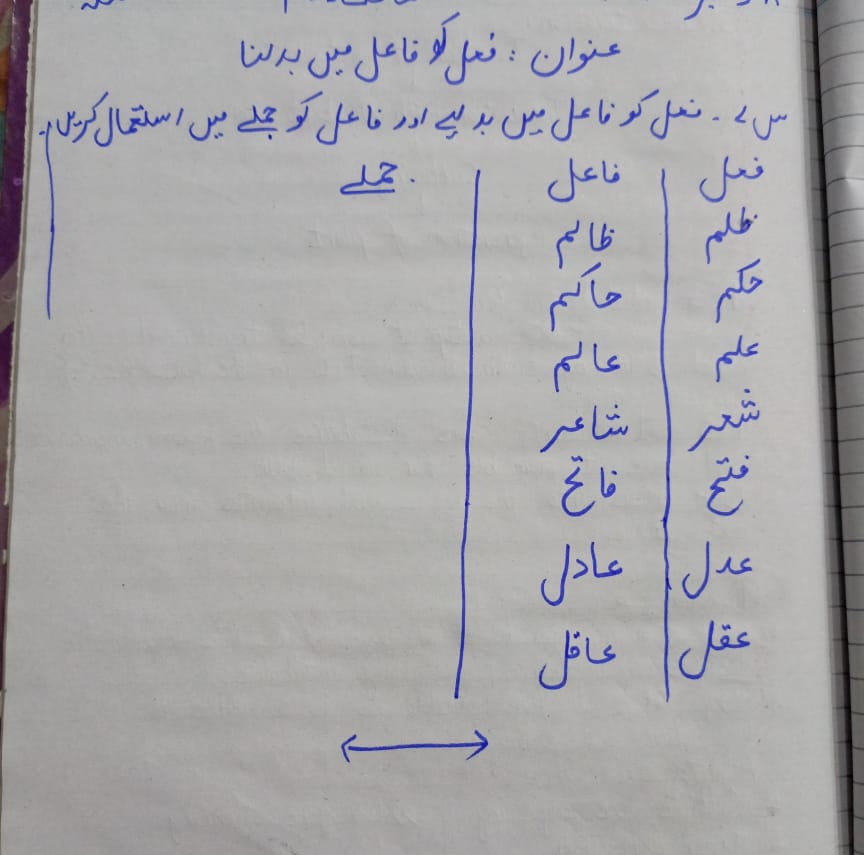 عنوان : فعل کو فاعل میں بدلنا
س ۷ ۔ فعل کو فاعل میں بدلیے اور فاعل کو جملے میں استعمال کریں۔
فعل فاعل جملے
ظلم ظالم
حکم حاکم
علم عالم
شعر شاعر
فتح فاتح
عدل عادل
عقل عاقل